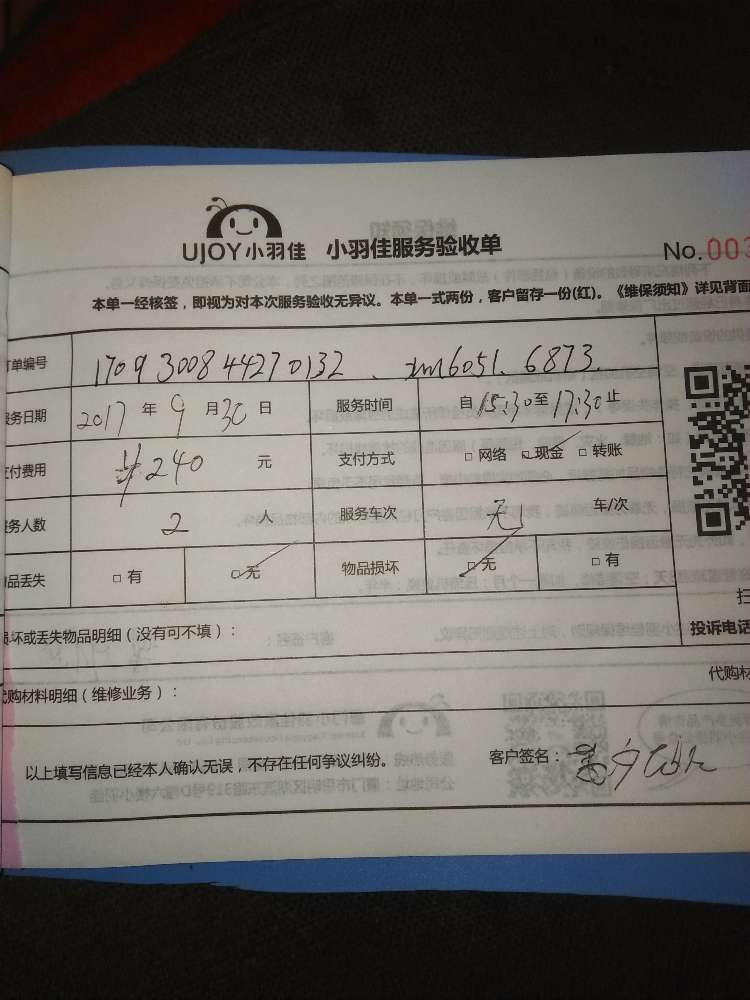 UJOY小羽佳 小羽佳服务验收单
No.003
本单一经核签，即视为对本次服务验收无异议。本单一式两份，客户留存一份(红)。《维保须知》详见背面
订单编号 1709300844270132、xm6051、6873.
服务日期 2017 年 9 月 30 日 服务时间 自 15:30 至 17:30 止
支付费用 ¥240 元 支付方式 □ 网络 □ 现金 □ 转账
服务人数 2 人 服务车次 无 车/次
物品丢失 □ 有 □ 无 物品损坏 □ 无 □ 有
损坏或丢失物品明细（没有可不填）：
投诉电话
代购材料明细（维修业务）：
代购材
以上填写信息已经本人确认无误，不存在任何争议纠纷。 客户签名：